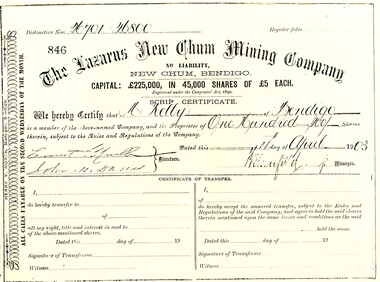 Distinctive Nos. 46701 46800 Register folio
846
The Lazarus New Chum Mining Company
NO LIABILITY,
NEW CHUM, BENDIGO.
CAPITAL: £225,000, IN 45,000 SHARES OF £5 EACH.
Registered under the Companies' Act, 1890.
SCRIP CERTIFICATE.
We hereby Certify that M Kelly of Bendigo
is a member of the above-named Company, and the Proprietor of One Hundred Shares
therein, subject to the Rules and Regulations of the Company.
Dated this April 1903
Directors. Manager.
ALL CALLS PAYABLE ON THE SECOND WEDNESDAY OF THE MONTH.
CERTIFICATE OF TRANSFER.
I
do hereby transfer to
of
all my right, title and interest in and to
of the above-mentioned shares.
Dated this day of 19
Signature of Transferor
Witness
I
of
do hereby accept the annexed transfer, subject to the Rules and
Regulations of the said Company, and agree to hold the said shares
therein mentioned upon the same terms and conditions as the said
held the same.
Dated this day of 19
Signature of Transferee
Witness